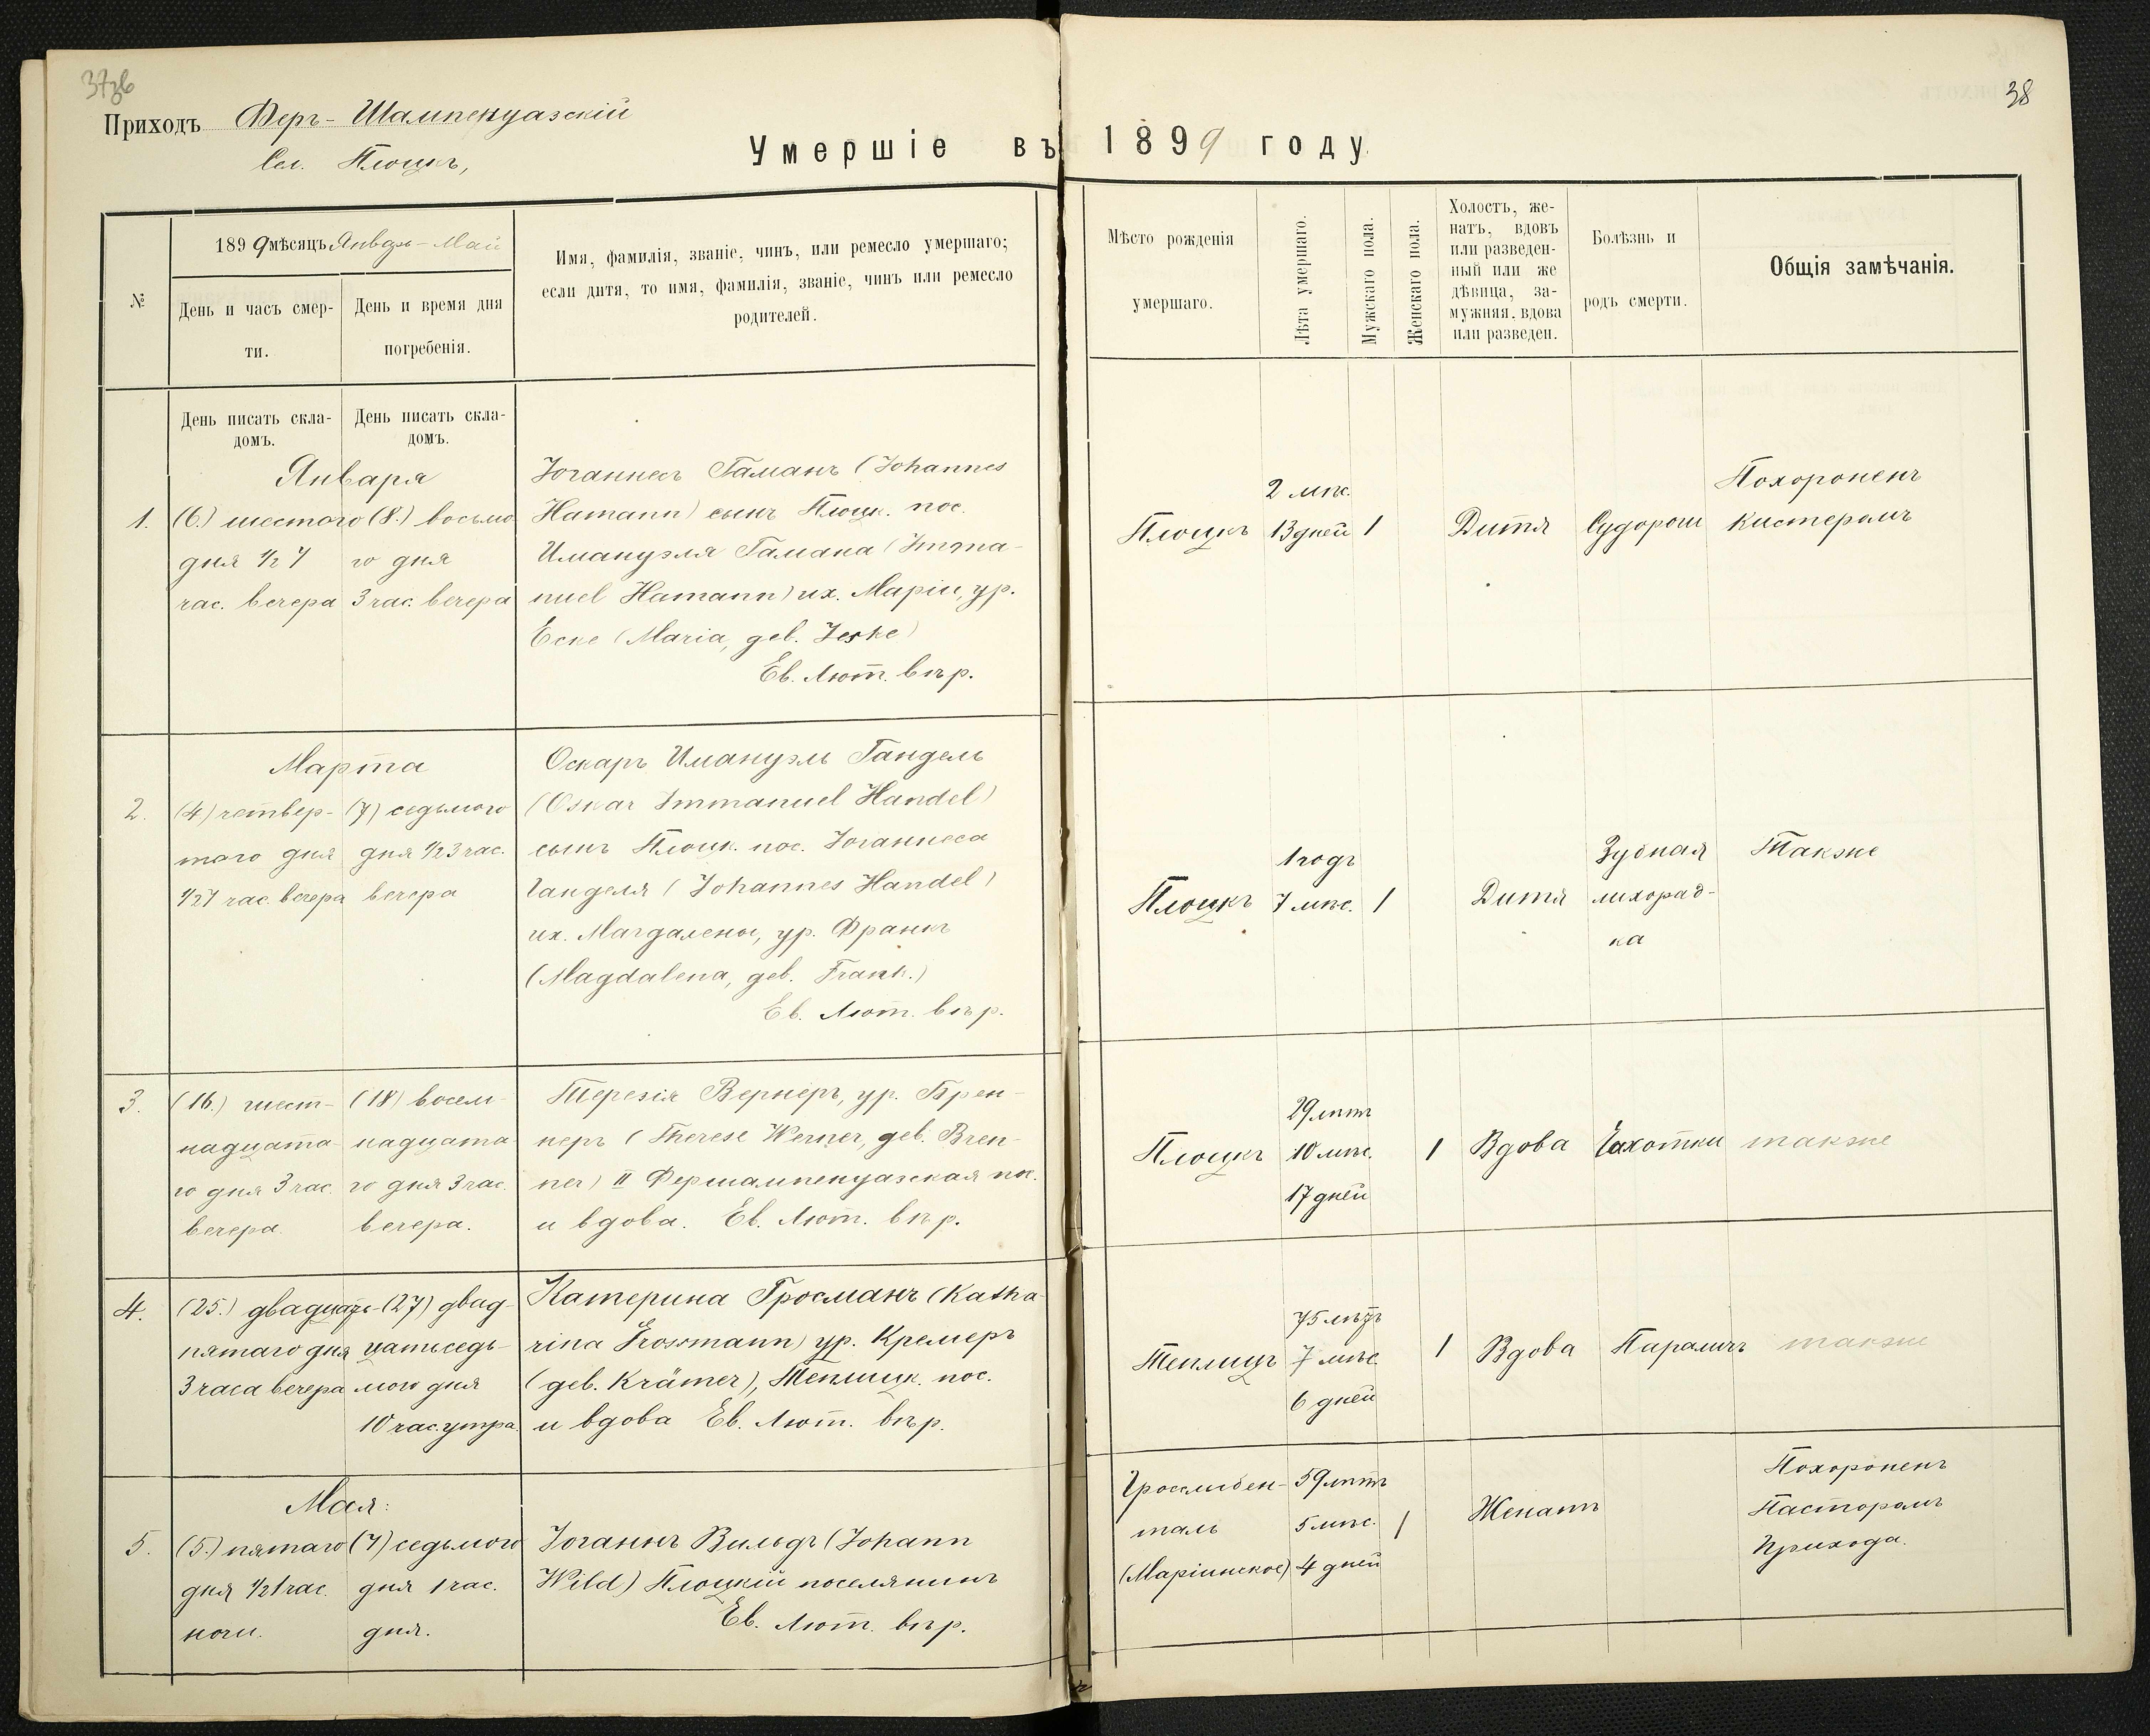 37об
Приходъ Феръ-Шампенуазскій
Сел. Плоцкъ,
Умершіе въ
№
1899 мѣсяцъ Январь-Май
День и часъ смер-
ти.
День и время дня
погребенія.
Имя, фамилія, званіе, чинъ, или ремесло умершаго;
если дитя, то имя, фамилія, званіе, чинъ или ремесло
родителей.
День писать скла-
домъ.
День писать скла-
домъ.
Января
1.
(6.) шестого
дня ½ 7
час. вечера
(8.) восьмо
го дня
3 час. вечера
Іоганнесъ Гаманъ (Johannes
Hamann) сынъ Плоцк. пос.
Имануэля Гамана (Imma-
nuel Hamann) их. Маріи, ур.
Еске (Maria, geb. Jeske)
Ев. Лют. вѣр.
Марта
2.
(4) четвер-
того дня
½7 час. вечера
(7) седьмого
дня ½3 час.
вечера
Оскаръ Имануэль Гандель
(Oskar Immanuel Handel)
сынъ Плоцк. пос. Іоганнеса
Ганделя (Johannes Handel)
их. Магдалены, ур. Франкъ
(Magdalena, geb. Frank.)
Ев. Лют. вѣр.
3.
(16.) шест-
надцата-
го дня 3 час.
вечера.
(18) восем-
надцата-
го дня 3 час.
вечера.
Терезія Вернеръ, ур. Брен-
неръ (Therese Werner, geb. Bren-
ner) II Фершампенуазская пос.
и вдова. Ев. Лют. вѣр.
4.
(25.) двадцать-
пятаго дня
3 часа вечера
(27) двад-
цатьседь-
мого дня
10 час. утра.
Катерина Гросманъ (Katha-
rina Grossmann) ур. Кремеръ
(geb. Krämer), Теплицк. пос.
и вдова Ев. Лют. вѣр.
Мая:
5.
(5.) пятаго
дня ½1 час.
ночи.
(7) седьмого
дня 1 час.
дня.
Іоганнъ Вильдъ (Johann
Wild) Плоцкій поселянинъ
Ев. Лют. вѣр.
38
1899 году.
Мѣсто рожденія
умершаго.
Лѣта умершаго.
Мужскаго пола.
Женскаго пола.
Холостъ, же-
натъ, вдовъ
или разведен-
ный или же
дѣвица, за-
мужняя, вдова
или разведен.
Болѣзнь и
родъ смерти.
Общія замѣчанія.
Плоцкъ
2 мѣс.
13 дней
1
Дитя
Судороги
Похороненъ
Кистеромъ
Плоцкъ
1 годъ
7 мѣс.
1
Дитя
Зубная
лихорад-
ка
Также
Плоцкъ
29 лѣтъ
10 мѣс.
17 дней
1
Вдова
Чахотки
также
Теплицъ
75 лѣтъ
7 мѣс.
6 дней
1
Вдова
Параличъ
также
Гросслибен-
таль
(Маріинское)
59 лѣтъ
5 мѣс.
4 дней
1
Женатъ
Похороненъ
Пасторомъ
Прихода.